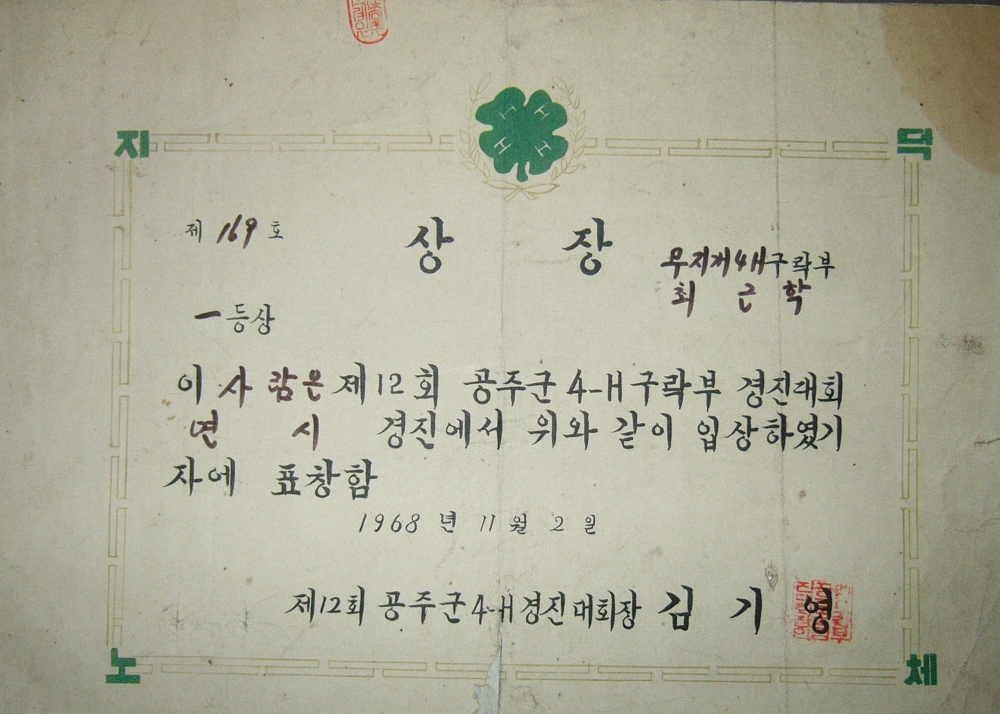 지 덕
H H H H
제 169 호
상 장
무지개4H구락부
최 근 학
一등상
이 사람은 제12회 공주군 4-H구락부 경진대회
면 시 경진에서 위와 같이 입상하였기
자에 표창함
1968 년 11 월 2 일
제12회 공주군4-H경진대회장 김 기 영
노 체